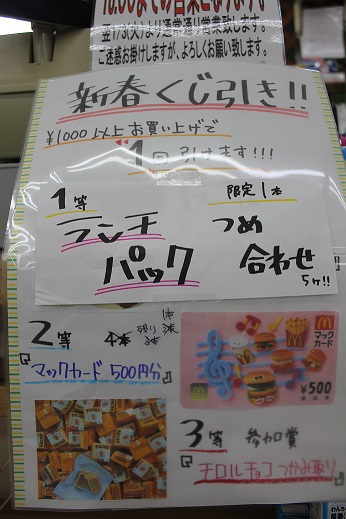 翌1/3(火)より通常通り営業致します。
ご迷惑お掛けしますが、よろしくお願い致します。
新春くじ引き!!
¥1000以上お買い上げで
1回引けます!!!
1等 限定1本
ランチ つめ
パック 合わせ
5ヶ!!
2等
残り
『マックカード 500円分』
マック
カード
¥500
3等 参加賞
『チロルチョコつかみ取り』